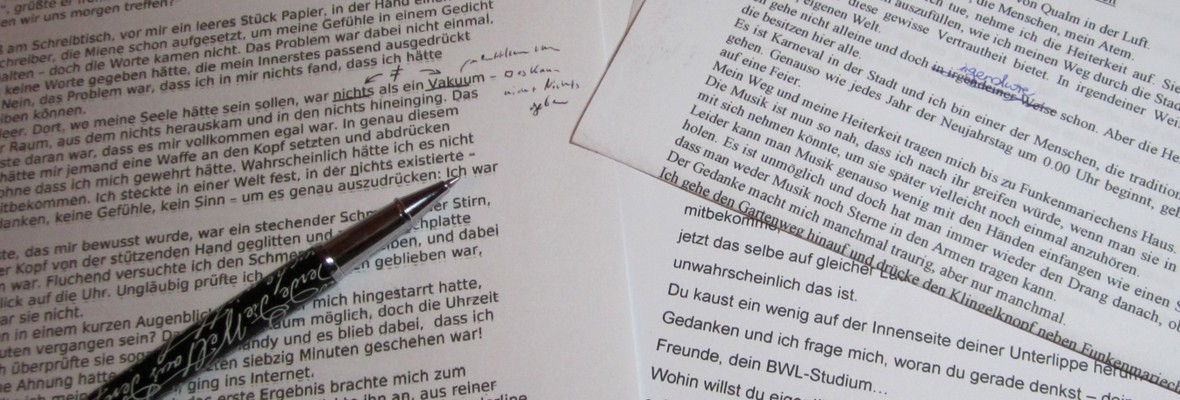 -, grüßte er
en wir uns morgen treffen?
am Schreibtisch, vor mir ein leeres Stück Papier, in der Hand einen
chreiber, die Miene schon aufgesetzt, um meine Gefühle in einem Gedicht
alten – doch die Worte kamen nicht. Das Problem war dabei nicht einmal,
keine Worte gegeben hätte, die mein Innerstes passend ausgedrückt
Nein, das Problem war, dass ich in mir nichts fand, dass ich hätte
iben können.
leer. Dort, wo meine Seele hätte sein sollen, war nichts als ein Vakuum –
r Raum, aus dem nichts herauskam und in den nichts hineinging. Das
ste daran war, dass es mir vollkommen egal war. In genau diesem
hätte mir jemand eine Waffe an den Kopf setzten und abdrücken
ohne dass ich mich gewehrt hätte. Wahrscheinlich hätte ich es nicht
itbekommen. Ich steckte in einer Welt fest, in der nichts existierte –
danken, keine Gefühle, kein Sinn – um es genau auszudrücken: Ich war
ste, das mir bewusst wurde, war ein stechender Schm er Stirn,
er Kopf von der stützenden Hand geglitten und chplatte
n war. Fluchend versuchte ich den Schme eben, und dabei
lick auf die Uhr. Ungläubig prüfte ich n geblieben war,
ar sie nicht.
n in einem kurzen Augenblic mich hingestarrt hatte,
uten vergangen sein? Da aum möglich, doch die Uhrzeit
h überprüfte sie sog andy und es blieb dabei, dass ich
e Ahnung hatte ten siebzig Minuten geschehen war!
ging ins Internet.
das erste Ergebnis brachte mich zum
ihn an, aus reiner
von Qualm in der Luft.
tue, nehme ich die Heiterkeit auf. Sie
auszufüllen, wie ich meinen Weg durch die Stadt
diese gewisse Vertrautheit bietet. In irgendeiner Wei
gehe nicht alleine und doch in irgendeiner Weise schon. Aber die He
irgendwie
die besitzen hier alle.
Es ist Karneval in der Stadt und ich bin einer der Menschen, die tradition
gehen. Genauso wie jedes Jahr der Neujahrstag um 0.00 Uhr beginnt, gehe
auf eine Feier.
Mein Weg und meine Heiterkeit tragen mich bis zu Funkenmariechens Haus.
Die Musik ist nun so nah, dass ich nach ihr greifen würde, wenn man sie in
mit sich nehmen könnte, um sie später vielleicht noch einmal anzuhören.
Leider kann man Musik genauso wenig mit den Händen einfangen wie einen S
holen. Es ist unmöglich und doch hat man immer wieder den Drang danach, ob
dass man weder Musik noch Sterne in den Armen tragen kann.
Der Gedanke macht mich manchmal traurig, aber nur manchmal.
Ich gehe den Gartenweg hinauf und drücke den Klingelknopf neben Funkenmariech
mitbekomm
jetzt das selbe auf gleicher
unwahrscheinlich das ist.
Du kaust ein wenig auf der Innenseite deiner Unterlippe herum
Gedanken und ich frage mich, woran du gerade denkst –
Freunde, dein BWL-Studium…
Wohin willst du eige